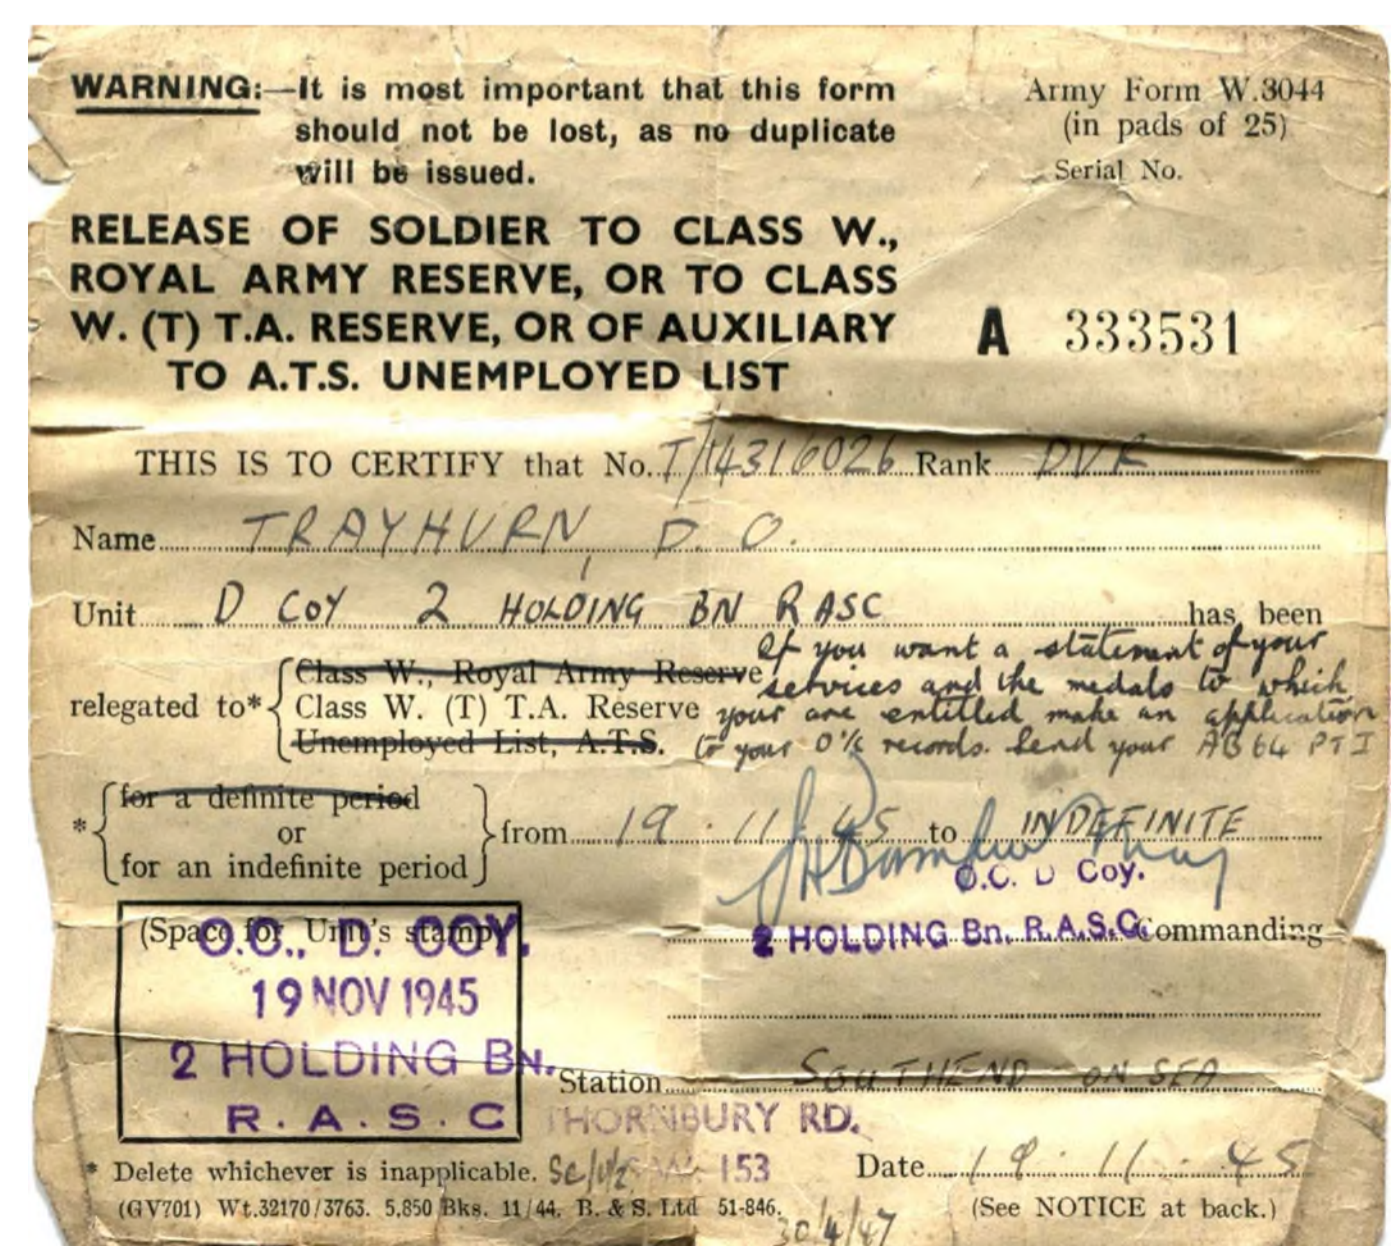 WARNING:—It is most important that this form
should not be lost, as no duplicate
will be issued.
Army Form W.3044
(in pads of 25)
Serial No.
RELEASE OF SOLDIER TO CLASS W.,
ROYAL ARMY RESERVE, OR TO CLASS
W. (T) T.A. RESERVE, OR OF AUXILIARY
TO A.T.S. UNEMPLOYED LIST
A 333531
THIS IS TO CERTIFY that No. T/14316026 Rank DVR
Name TRAYHURN, D. O.
Unit D COY 2 HOLDING BN RASC has been
relegated to*
Class W., Royal Army Reserve
Class W. (T) T.A. Reserve
Unemployed List, A.T.S.
If you want a statement of your
services and the medals to which
your are entitled make an application
to your O i/c records. Send your AB64 PT I
*
for a definite period
or
for an indefinite period
from 19.11.45 to INDEFINITE
O.C. D Coy.
2 HOLDING Bn. R.A.S.C. Commanding
(Space for Unit's stamp)
O.C., D. COY.
19 NOV 1945
2 HOLDING BN.
R.A.S.C
Station SOUTHEND ON SEA
THORNBURY RD.
* Delete whichever is inapplicable.
153
Date 19.11.45
(GV701) Wt.32170/3763. 5,850 Bks. 11/44. B. & S. Ltd 51-846.
(See NOTICE at back.)
30/4/47